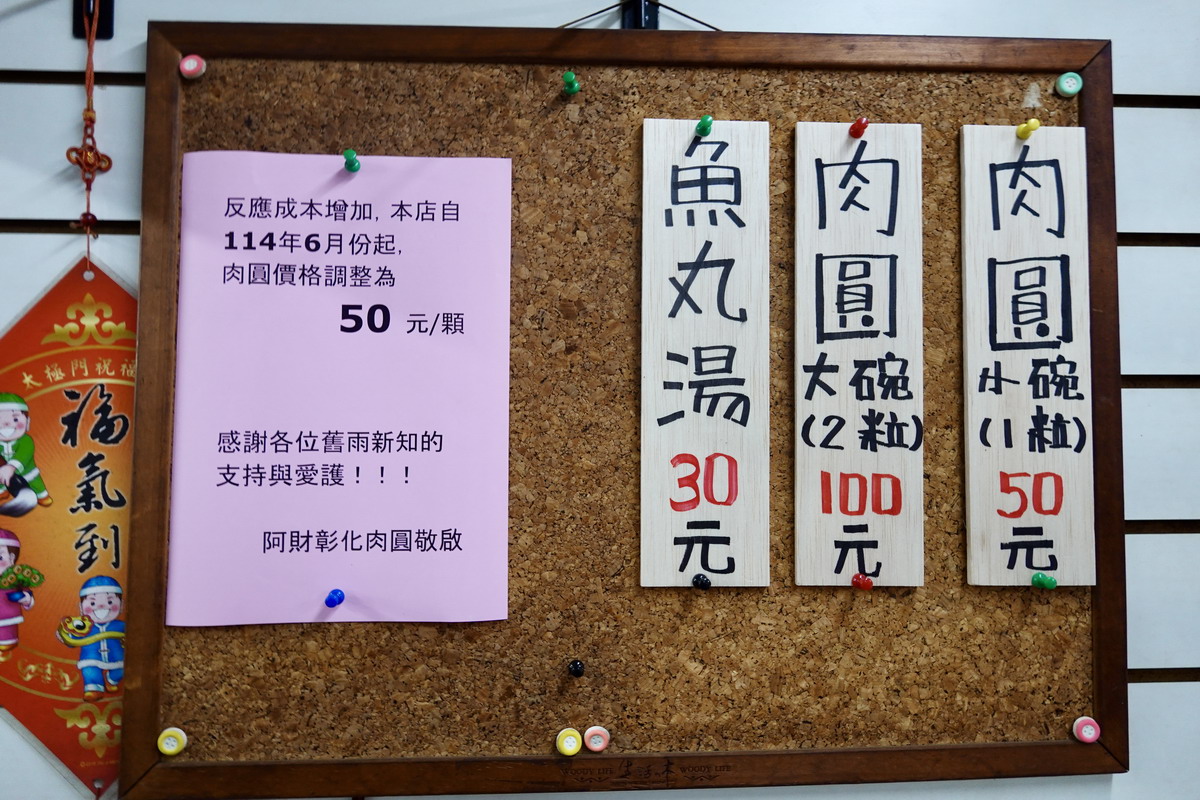 反應成本增加, 本店自
114年6月份起,
肉圓價格調整為
50 元/顆
感謝各位舊雨新知的
支持與愛護！！！
阿財彰化肉圓敬啟
肉圓
小碗
(1粒)
50
元
肉圓
大碗
(2粒)
100
元
魚丸湯
30
元
太極門祝福
福氣到
WOODY LIFE 生活木 WOODY LIFE